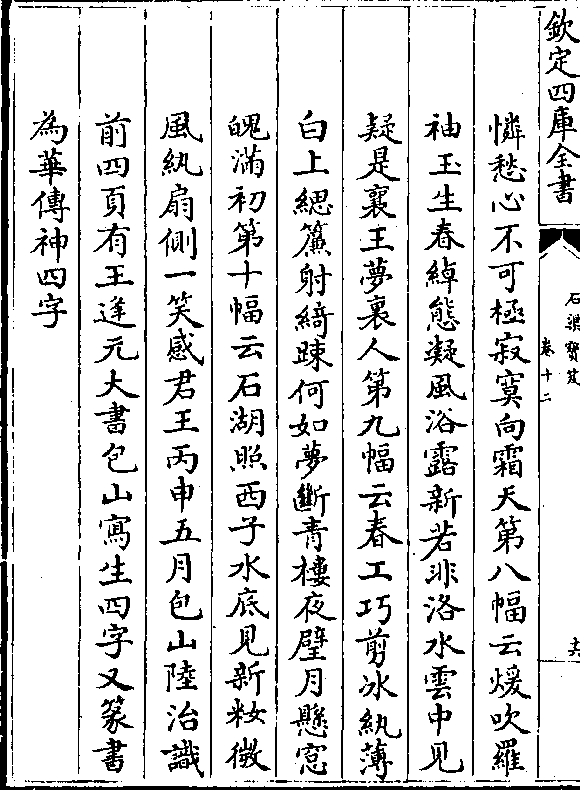 欽定四庫全書
石渠寳笈
卷十二
憐愁心不可極寂寞向霜天第八幅云煖吹羅
袖玉生春綽態凝風浴露新若非洛水雲中見
疑是襄王夢裏人第九幅云春工巧剪冰紈薄
白上緦簾射綺疎何如夢斷青樓夜壁月懸窓
魄滿初第十幅云石湖照西子水底見新粧微
風紈扇側一笑感君王丙申五月包山陸治識
前四頁有王逢元大書包山寫生四字又篆書
為華傳神四字